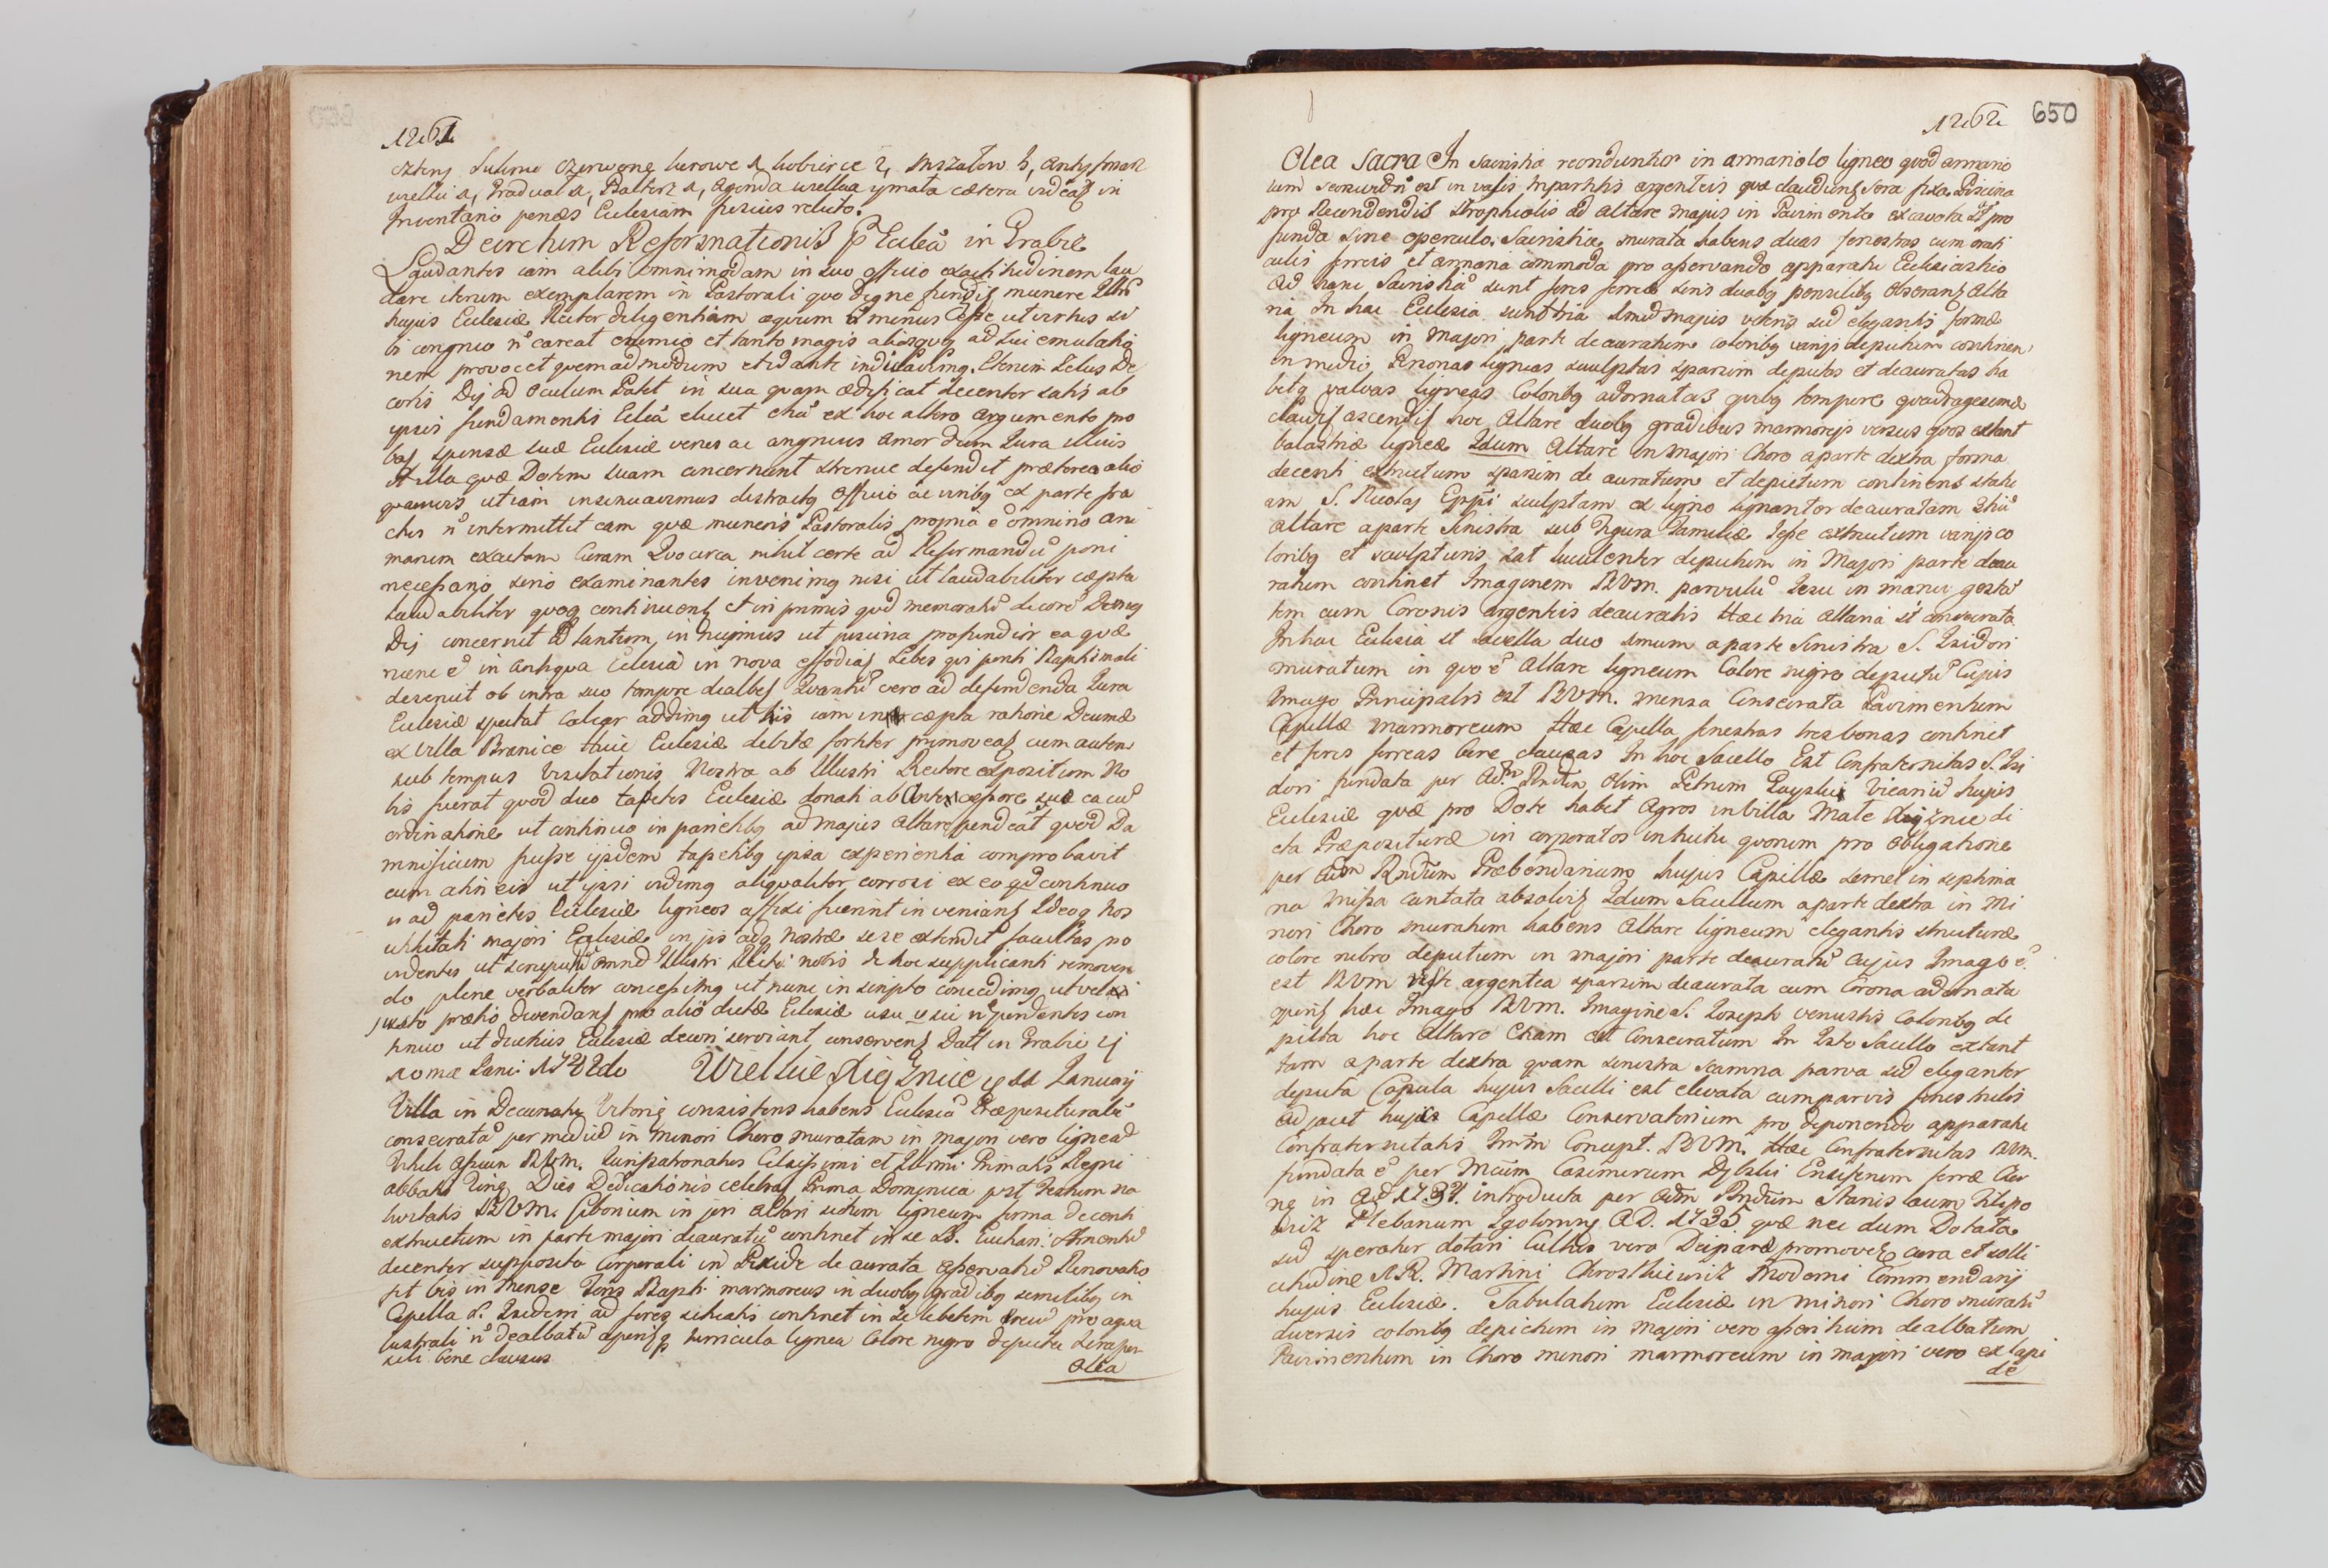 1261
czterij Suknie czerwone kurowe 1 kobierce 2, Mszałow 3, Antyfonarz
wielki 1, Graduał 1, Psałterz 1, Agenda wielka 1 cætera videat in
Inventario penes Ecclesiam fusius relicto.
Decretum Reformationis p Eccleã in Grabie
Laudantes iam alibi omnimodam in suo officio exactitudinem lau
dare iterum exemplarem in Pastorali quo digne fungit munere Illtris
hujus Ecclesiæ Rector diligentiam æquum duximus Esse ut virtus si
bi congruo n careat enumio et tanto magis aliosquoq ad sui emulatio
nem provocet quemadmodum et id ante indicavimg. Etenim Zelus De
coris Dej ad oculum Patet in sua quam ædificat decenter satis ab
ipsis fundamentis Eccleã elucet etiã ex hoc altero argumento pro
bas sponsæ suæ Ecclesiæ verus ac angnuus amor dum Jura illius
et illa quæ Dotem suam concernunt strenue defendit præterea alio
quamvis ut iam insinuavimus distractg officio ac viribg ex parte fra
ctus n intermittit eam quæ muneris Pastoralis propria e omnino ani
marum exactam Curam Quocirca nihil certe ad Reformandũ poni
necessario serio examinantes invenimg nisi ut laudabiliter cæpta
laudabiliter quoq continuent et in primis quod memoratũ decorẽ Domg
Dej concernit ad tantum injungimus ut piscina profundior ea quæ
nunc ẽ in antiqua Ecclesia in nova effodiat Lebes qui fonti Baptismali
deseruit ob intra suo tempore dealbet Quantũ vero ad defendenda Jura
Ecclesiæ spectat Calcar addimg ut his iam in cæpta ratione Decimæ
ex Villa Branice huic Ecclesiæ debitæ fortiter promoveat cum autem
sub tempus Visitationis Nostra ab Illustri Rectore expositum No
bis fuerat quod duo tapetes Ecclesiæ donati ab Antecessore suo ea cũ
ordinatione ut continuo in parietibg ad majus Altare pendeãt quod Da
mnificum fuisse ijsdem tapetibg ipsa experientia comprobavit
cum etiam eis ut ipsi vidimg aliqualiter corrosi ex eo qd continuo
n ad parietes Ecclesiæ ligneos affixi fuerint inveniant Ideoq Nos
utilitati majori Ecclesiæ in ijs adq nostræ sese extendit facultas pro
videntes ut scrupulũ omnẽ Illustri Rectori nobis de hoc supplicanti removen
do plene verbaliter concessimg ut nunc in scripto concedimg, ut vel
justo prætio divendant pro alio dictæ Ecclesiæ usu v sui n pendentes con
tinuo ut diutius Ecclesiæ decori serviant conserventg Datt in Grabie ij
1oma Jani: 1748do Wielkie Xiąznice y 11 January
Villa in Decanatu Vitovię consistens habens Ecclesiã Præposituralẽ
consecratã per mediũ in minori Choro muratam in majori vero ligneã
tituli assum BVM. Jurispatronatus Celsissimi et Illrmi Primatis Regni
abbatis Tinę Dies Dedicationis celebrat Prima Dominica post Festum Na
tivitatis BVM. Ciborium in jori altari situm ligneum forma decenti
extructum in parte majori deauratũ continet in se SS. Euchari: Sacrmentũ
decenter supposito Corporali in Pixide deaurata asservatũ Renovatio
fit bis in Mense Fons Bapti marmoreus in duobg gradibg similibg in
Capella S. Isidori ad fores situatus continet in se lebetem æreũ pro aqua
lustrali n dealbatũ apensq turricula lignea Colore nigro depicta sera pen
sili bene clausus
Olea
1262
650
Olea Sacra In Sacristia reconduntur in armariolo ligneo quod armario
lum seorsivũ n est in vasis Tripartitis argenteis quæ claudunt sera fixa Piscina
pro Recondendis Strophiolis ad altare majus in Pavimento excavata st pro
funda sine operculo. Sacristia murata habens duas fenestras cum crati
culis ferreis et armaria commoda pro asservando apparatu Ecclesiastico
Ad hanc Sacristiã sunt fores ferreæ seris duabg pensilibg obserant Alta
ria In hac Ecclesia sunt tria 1mum majus veteris sed elegantis formæ
ligneum in majori parte deauratum coloribg varijs depictum continen
in medio Personas ligneas sculptas sparsim depictas et deauratas ha
betq valvas ligneas Coloribg adornatas quibg tempore quadragesimæ
claudit ascendit hoc Altare duobg gradibus marmoreis versus quos extant
balastriæ ligneæ 2dum Altare in majori Choro a parte dextra forma
decenti extructum sparsim deauratum et depictum continens statu
am S. Nicolaj Eppi sculptam ex ligno lignanter deauratam 3tiũ
altare a parte sinistra sub Figura Familiæ Jesse extructum varijs co
loribg et sculpturis sat luculenter depictum in Majori parte deau
ratum continet Imaginem BVM. parvulũ Jesu in manu gestan
tem cum Coronis argenteis deauratis Hæc tria altaria st consecrata
In hac Ecclesia st sacella duo 1mum a parte sinistra S. Isidori
muratum in quo ẽ Altare ligneum Colore nigro depictũ Cujus
Imago Principalis est BVM. mensa Consecrata Pavimentum
Capellæ marmoreum Hæc Capella fenestras tres bonas continet
et fores ferreas bene clausas In hoc Sacello Est Confraternitas S. Isi
dori fundata per Adm Rndum Olim Petrum Vicariũ hujus
Ecclesiæ quæ pro Dote habet agros in Villa Małe Xiąznice di
cta Præposituræ in corporatos intuitu quorum pro obligatione
per Adm Rndum Præbendarium hujus Capellæ semel in septima
na Missa cantata absolvit 2dum Sacellum a parte dextra in Mi
nori Choro muratum habens Altare ligneum elegantis structuræ
colore rubro depictum in majori parte deauratũ Cujus Imago ẽ
est BVM veste argentea sparsim deaurata cum Corona adornata
hæc Imago BVM. Imagine S. Joseph venustis Coloribg de
picta hoc Altare etiam est Consecratum In Isto Sacello extant
tam a parte dextra quam sinistra scamna parva sed eleganter
depicta Copula hujus Sacelli est elevata cum parvis fenestrulis
adjacet hujce Capellæ Conservatorium pro deponendo apparatu
Confraternitatis Imm Concept. BVM. Hæc Confraternitas BVM.
fundata ẽ per Mcum Casimirum Dylski Ensiferum terræ Czer
ne in AD 1731. introducta per Adm Rndum Stanislaum Filipo
wicz Plebanum Igolomiy AD. 1735. quæ nec dum Dotata
sed speratur dotari Cultus vero Deiparæ promovet cura et solli
citudine A.R. Martini Chrosthiewicz Moderni Commendarij
hujus Ecclesiæ. Tabulatum Ecclesiæ in minori Choro muratũ
diversis coloribg depictum in majori vero asseritium dealbatum
Pavimentum in Choro minori marmoreum in majori vero ex lapi
de